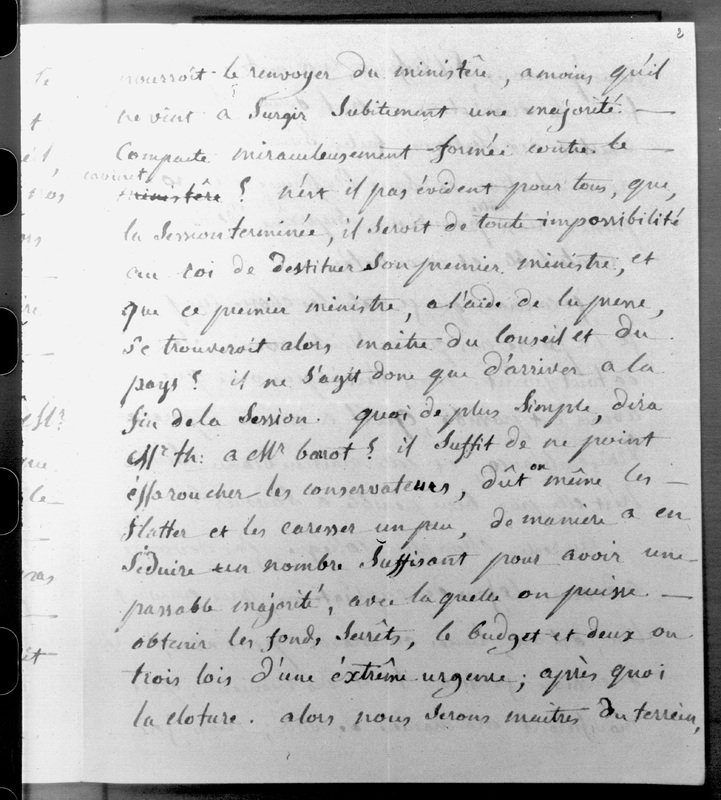 2
pourroit le renvoyer du ministère, amoins qu'il
ne vint a surgir subitement une majorité —
compacte miraculeusement formée contre le —
cabinet
ministère ? n'est il pas évident pour tous, que,
la session terminée, il seroit de toute impossibilité
au roi de destituer son premier ministre, et
que ce premier ministre, a l'aide de la presse,
se trouveroit alors maitre du conseil et du
pays ? il ne s'agit donc que d'arriver a la
fin de la session. quoi de plus simple, dira
Mr th: a Mr barot ? il suffit de ne point
éffaroucher les conservateurs, dût on même les —
flatter et les caresser un peu, de manière a en
séduire un nombre suffisant pour avoir une
passable majorité, avec laquelle on puisse —
obtenir les fonds secrêts, le budget et deux ou
trois lois d'une éxtrême urgence ; après quoi
la cloture. alors nous serons maitres du terrein,